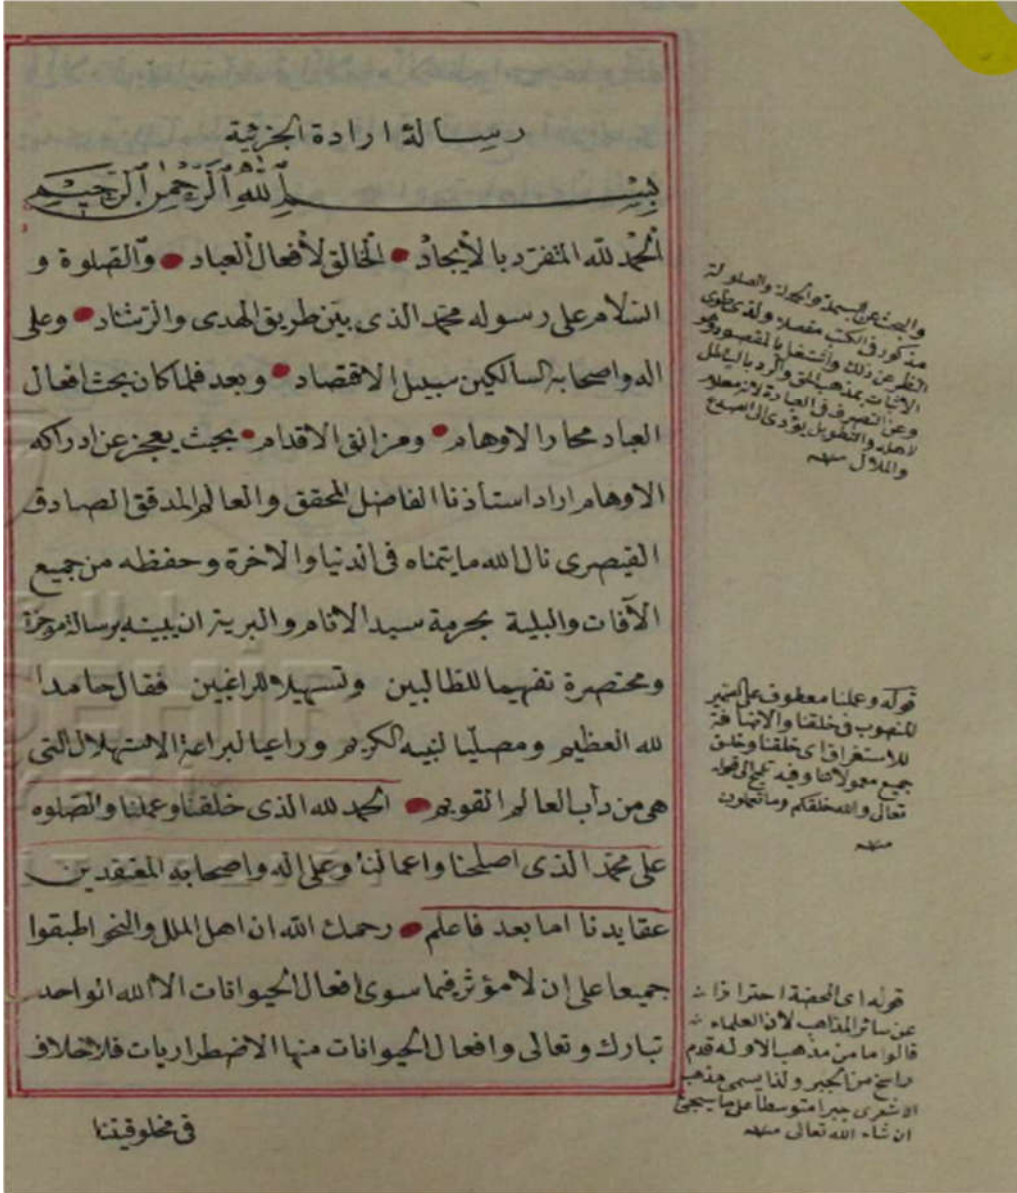 رسالة ارادة الجزئية
بسم الله الرحمن الرحيم
الحمد لله المتفرد بالأيجاد • الخالق لأفعال العباد • والصلوة و
السلام على رسوله محمد الذى بين طريق الهدى والرشاد • وعلى
اله واصحابه السالكين سبيل الاقتصاد • وبعد فلما كان بحث افعال
العباد محارا لاوهام • ومزالق الاقدام • بحيث يعجز عن ادراكه
الاوهام اراد استاذنا الفاضل المحقق والعالم المدقق الصادق
القيصرى نال الله ما يتمناه فى الدنيا والاخرة وحفظه من جميع
الآفات والبلية بحرمة سيد الانام والبرية ان يبينه برسالة موجزة
ومختصرة تفهيما للطالبين وتسهيلا للراغبين فقال حامدا
لله العظيم ومصليا لنبيه الكريم وراعيا لبراعة الاستهلال التى
هى من دأب العالم القويم • الحمد لله الذى خلقنا وعملنا والصلوه
على محمد الذى اصلحنا واعمالنا وعلى اله واصحابه المعتقدين
عقايدنا اما بعد فاعلم • رحمك الله ان اهل الملل والنحل اطبقوا
جميعا على ان لا مؤثر فيما سوى افعال الحيوانات الا الله الواحد
تبارك وتعالى وافعال الحيوانات منها الاضطراريات فلا خلاف
فى مخلوقيتنا
والبحث عن البسملة والحمدلة والصلولة
مذكور فى الكتب مفصلا ولذى طوى
النظر عن ذلك واشتغل بالمقصود وهو
الاثبات بمذهب الحق والرد بالباطل
وعن التصرف فى العبارة لانه معلوم
لاهله والتطويل يؤدى الى
والملال منه
قوله وعملنا معطوف على الضمير
المنصوب فى خلقنا والاضافة
للاستغراق اى خلقنا وخلق
جميع معمولاتنا وفيه تلميح الى قوله
تعالى والله خلقكم وما تعملون
منه
قوله اى المحضة احترازا
عن سائر المذاهب لان العلماء
قالوا ما من مذهب الا وله قدم
راسخ من الجبر ولذا يسمى مذهب
الاشعرى جبرا متوسطا على ما سيجئ
ان شاء الله تعالى منه